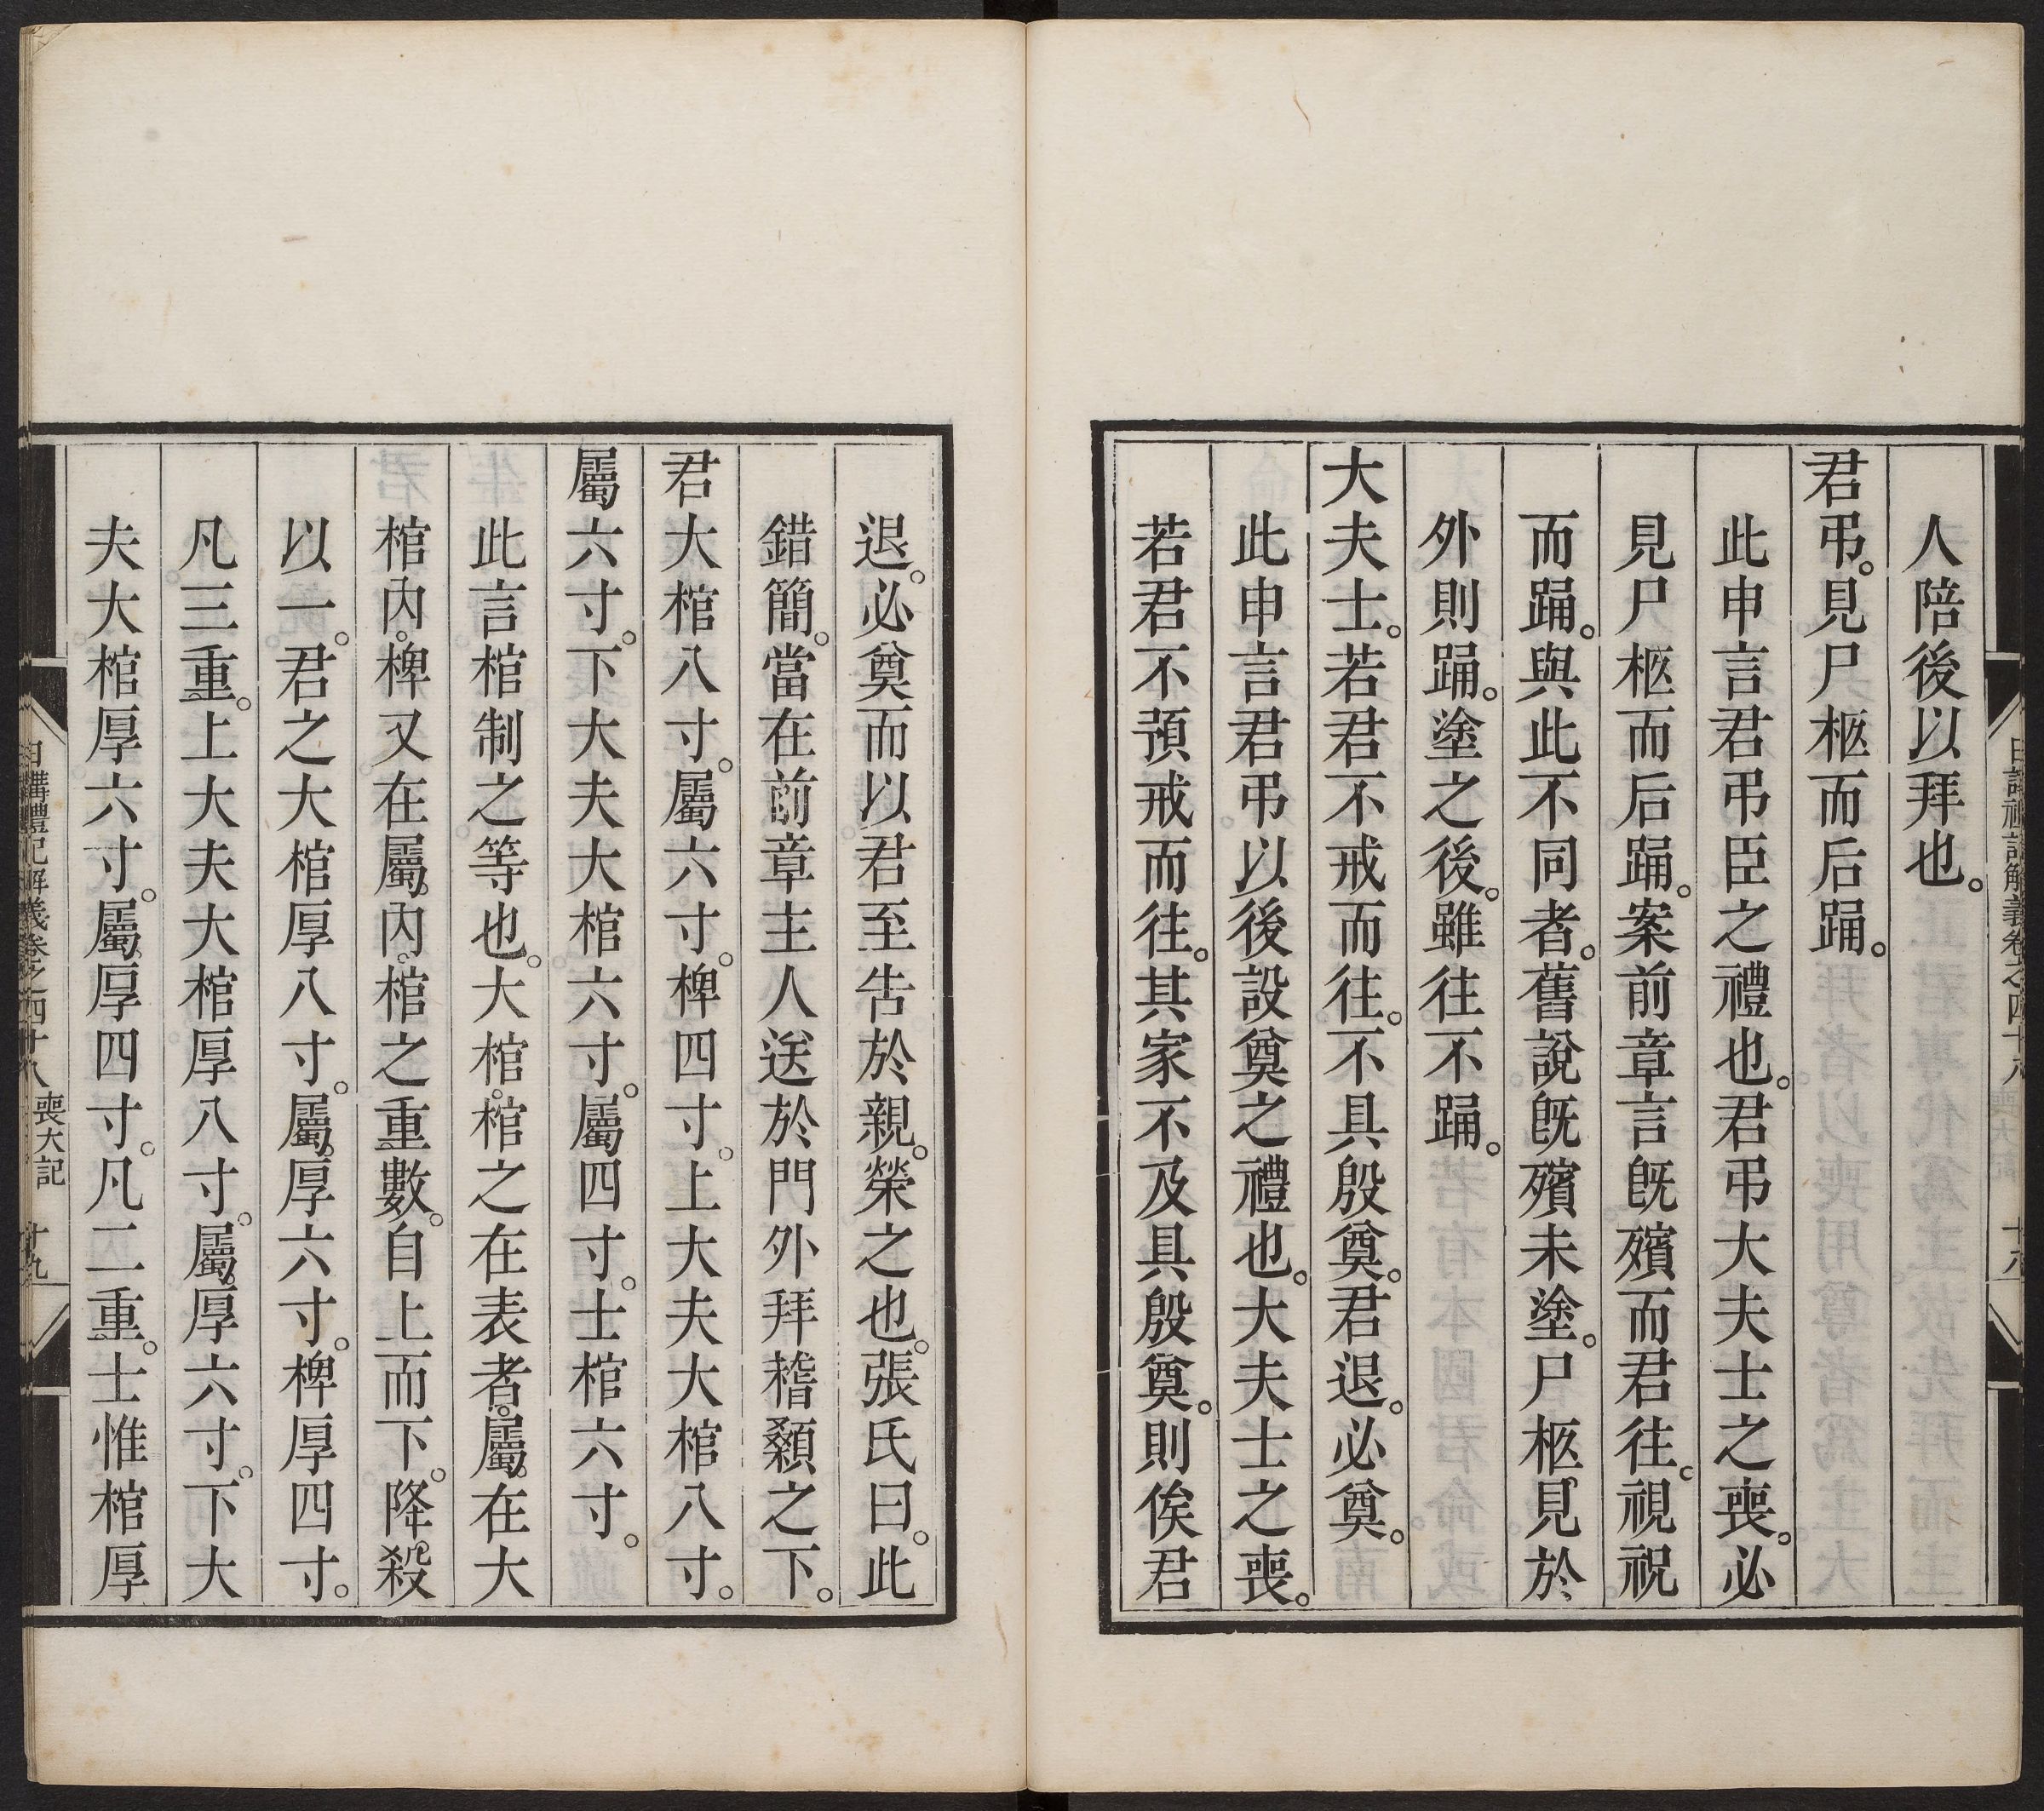 人陪後以拜也。
君弔。見尸柩而后踊。
此申言君弔臣之禮也。君弔大夫士之喪。必
見尸柩而后踊。案前章言旣殯而君往。視祝
而踊。與此不同者。舊說旣殯未塗。尸柩見於
外則踊。塗之後。雖往不踊。
大夫士。若君不戒而往。不具殷奠。君退。必奠。
此申言君弔以後設奠之禮也。大夫士之喪。
若君不預戒而往。其家不及具殷奠。則俟君
退。必奠而以君至告於親。榮之也。張氏曰。此
錯簡。當在前章主人送於門外拜稽顙之下。
君大棺八寸。屬六寸。椑四寸。上大夫大棺八寸。
屬六寸。下大夫大棺六寸。屬四寸。士棺六寸。
此言棺制之等也。大棺。棺之在表者。屬。在大
棺內。椑又在屬。內。棺之重數。自上而下。降。殺
以一。君之大棺厚八寸。屬。厚六寸。椑厚四寸。
凡三重。上大夫大棺厚八寸。屬。厚六寸。下大
夫大棺厚六寸。屬。厚四寸。凡二重。士惟棺厚
日講禮記解義卷之四十八 喪大記 十九